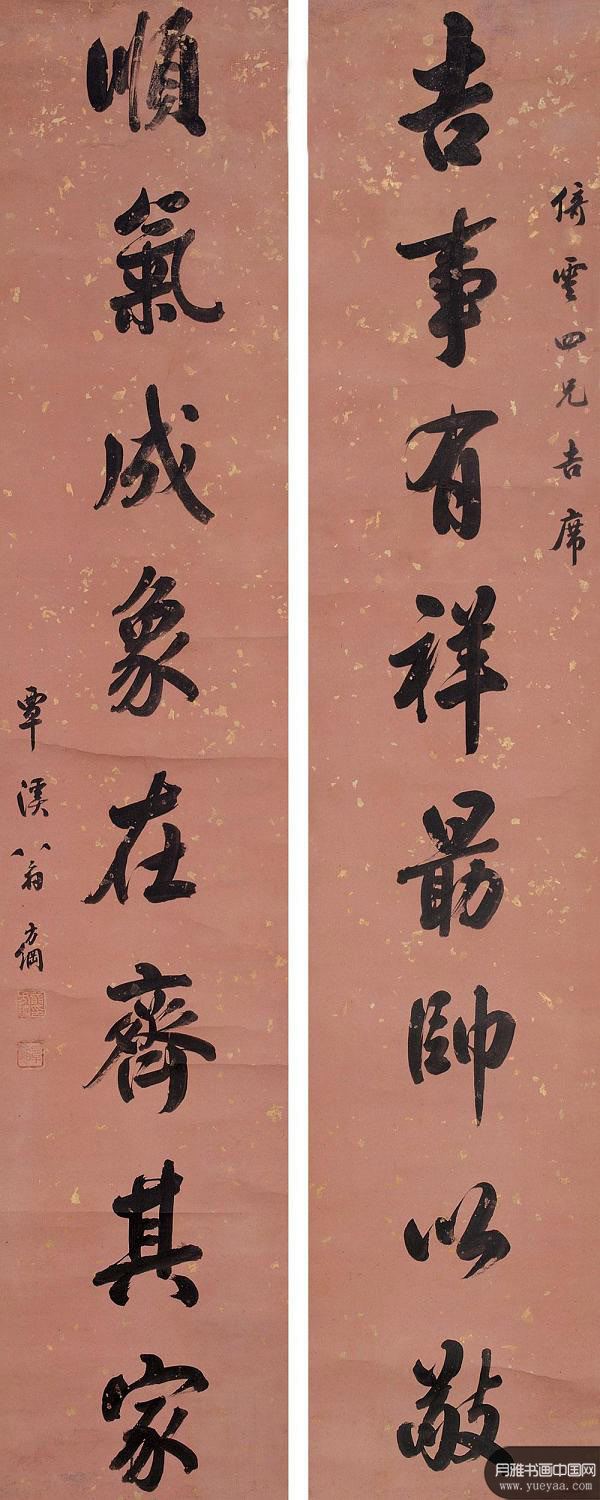 倚雲四兄吉席
吉事有祥勗帥以敬
順氣成象在齊其家
覃溪翁方綱
月雅书画中国网
www.yueyaa.com